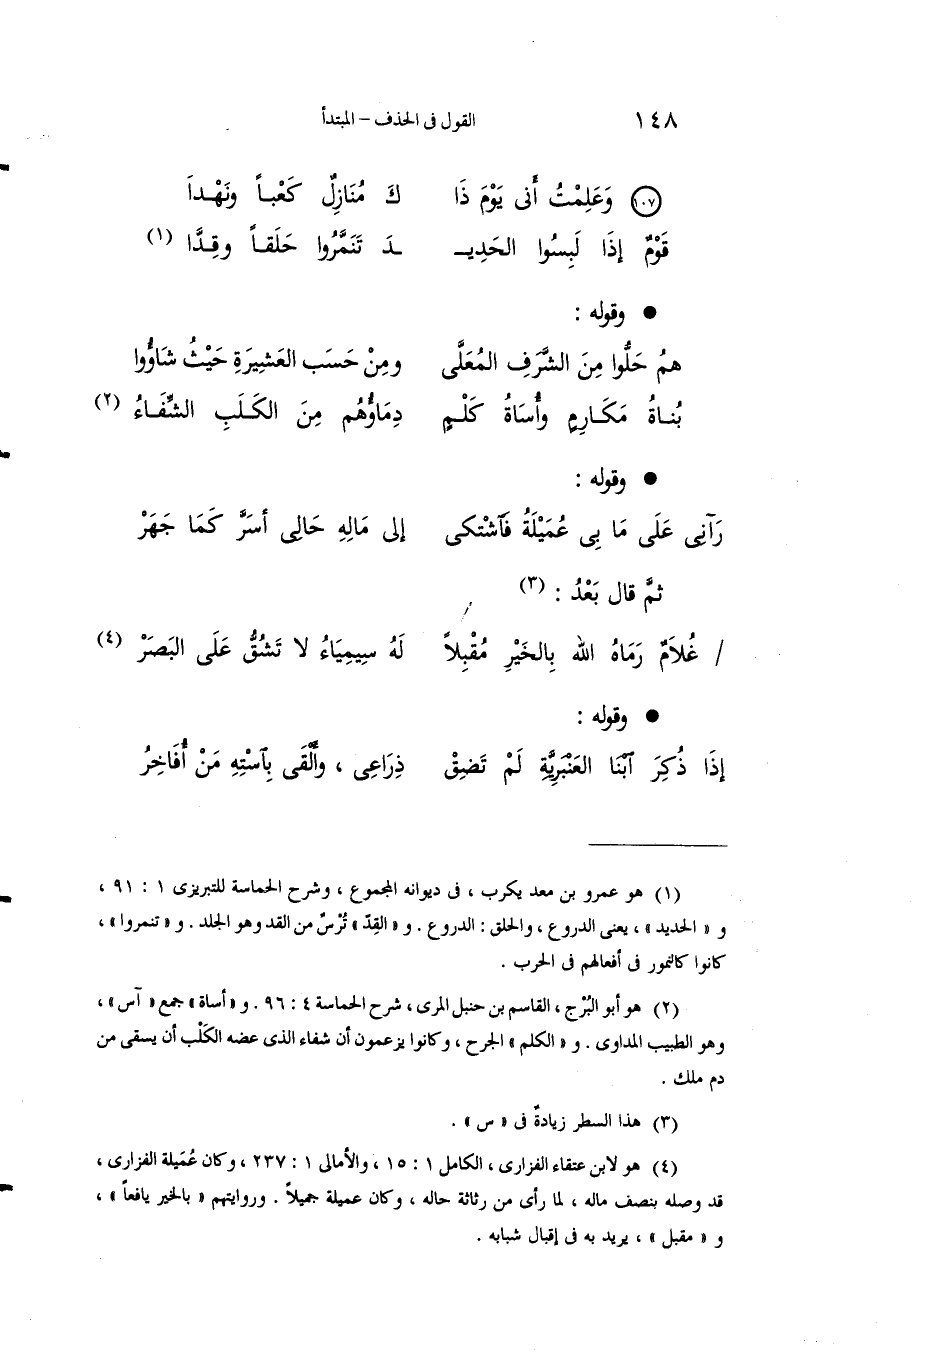 ١٤٨ القول فى الحذف – المبتدأ
(١٠٧) وَعَلِمْتُ أَنى يَوْمَ ذَا كَ مُنَازِلٌ كَعْباً ونَهْداَ
قَوْمٌ إذَا لَبِسُوا الحَدِيـ ـدَ تَنَمَّرُوا حَلَقاً وقِدًّا (١)
● وقوله :
همُ حَلُّوا مِنَ الشَّرَفِ المُعَلَّى ومِنْ حَسَب العَشِيرَةِ حَيْثُ شَاؤُوا
بُناةُ مَكَارِمٍ وأُسَاةُ كَلْمٍ دِمَاؤُهُم مِنَ الكَلَبِ الشِّفَاءُ (٢)
● وقوله :
رَآنِى عَلَى مَا بِى عُمَيْلَةُ فَآشْتكى إلى مَالِهِ حَالِى أسَرَّ كَمَا جَهَرْ
ثمَّ قال بَعْدُ : (٣)
/ غُلاَمٌ رَمَاهُ الله بِالخَيْرِ مُقْبِلاً لَهُ سِيمِيَاءُ لا تَشُقُّ عَلَى البَصَرْ (٤)
● وقوله :
إذَا ذُكِرَ آبْنَا العَنْبَرِيَّةِ لَمْ تَضِقْ ذِرَاعِى ، وأَلْقَى بِآسْتِهِ مَنْ أُفَاخِرُ
(١) هو عمرو بن معد يكرب ، فى ديوانه المجموع ، وشرح الحماسة للتبريزى ١ : ٩١ ،
و « الحديد » ، يعنى الدروع ، والحلق : الدروع . و « القِدّ » تُرْسٌ من القد وهو الجلد . و « تنمروا » ،
كانوا كالنمور فى أفعالهم فى الحرب .
(٢) هو أبو البُرْج ، القاسم بن حنبل المرى ، شرح الحماسة ٤ : ٩٦ . و « أساة » جمع « آس » ،
وهو الطبيب المداوى . و « الكلم » الجرح ، وكانوا يزعمون أن شفاء الذى عضه الكَلْب أن يسقى من
دم ملك .
(٣) هذا السطر زيادةٌ فى « س » .
(٤) هو لابن عتقاء الفزارى ، الكامل ١ : ١٥ ، والأمالى ١ : ٢٣٧ ، وكان عُمَيلة الفزارى ،
قد وصله بنصف ماله ، لما رأى من رثاثة حاله ، وكان عميلة جميلاً . وروايتهم « بالخير يافعاً » ،
و « مقبل » ، يريد به فى إقبال شبابه .